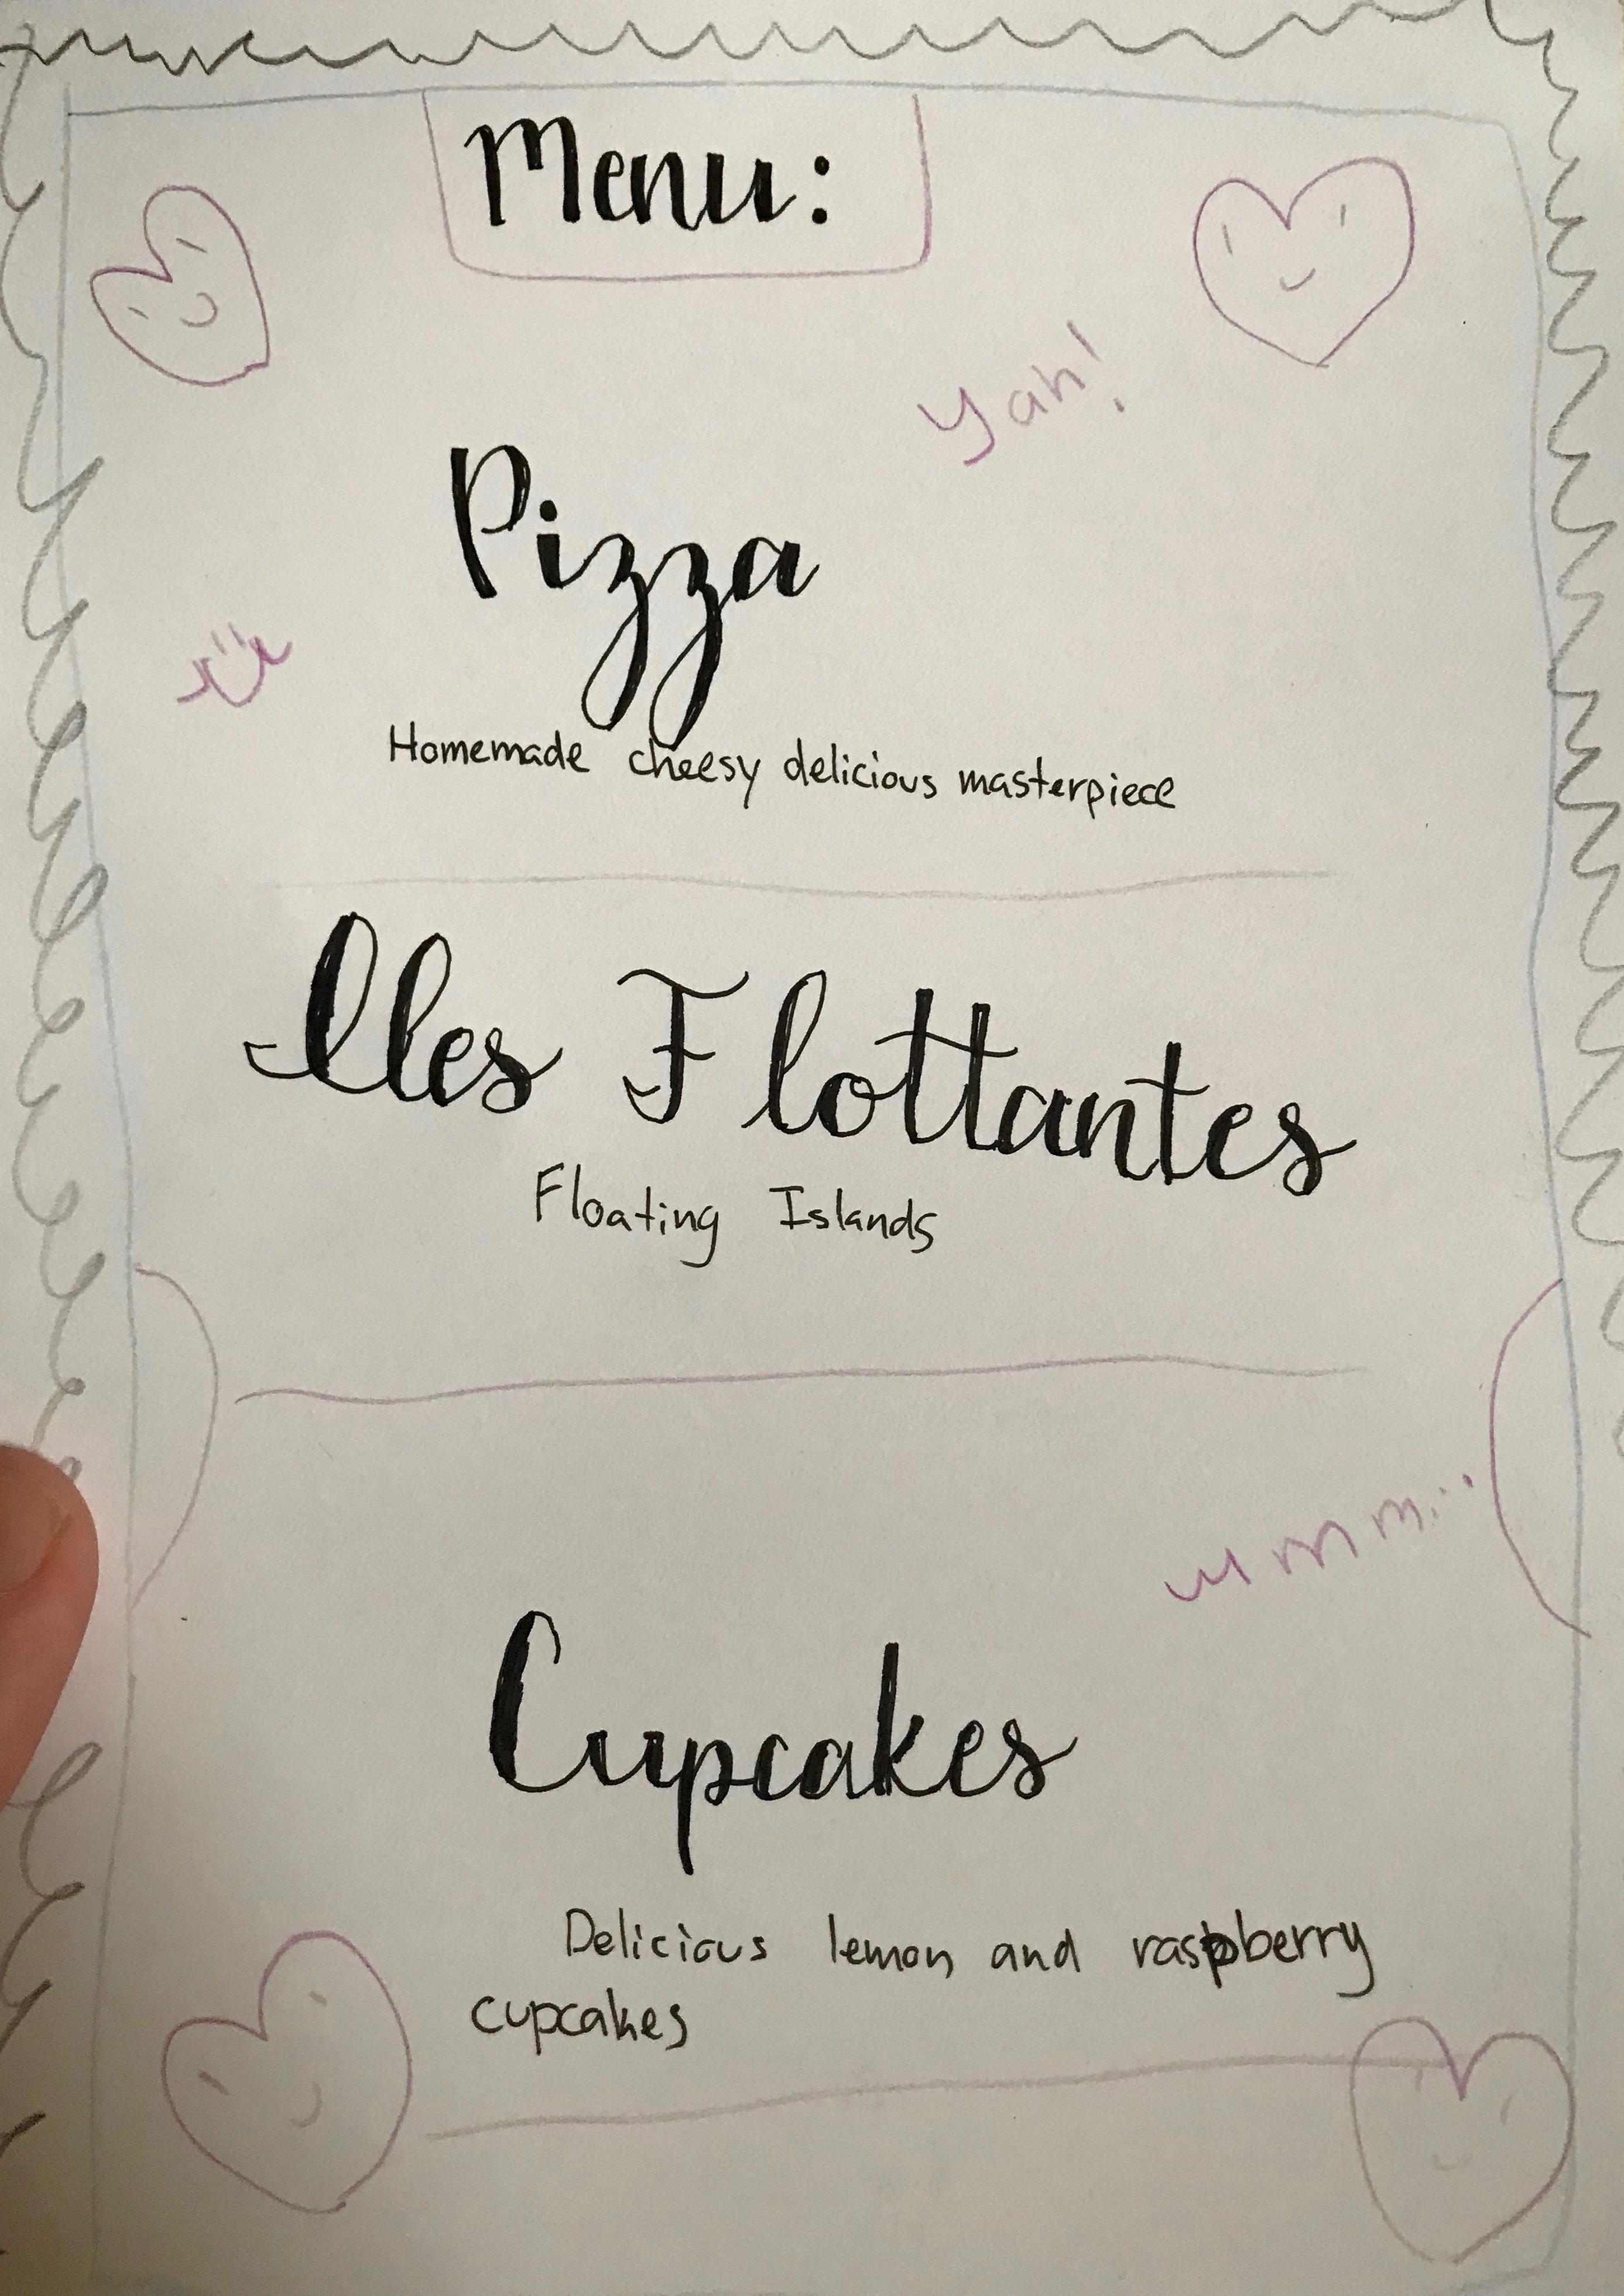 Menu:
Yah!
Pizza
Homemade cheesy delicious masterpiece
Iles Flottantes
Floating Islands
ummm...
Cupcakes
Delicious lemon and raspberry
cupcakes